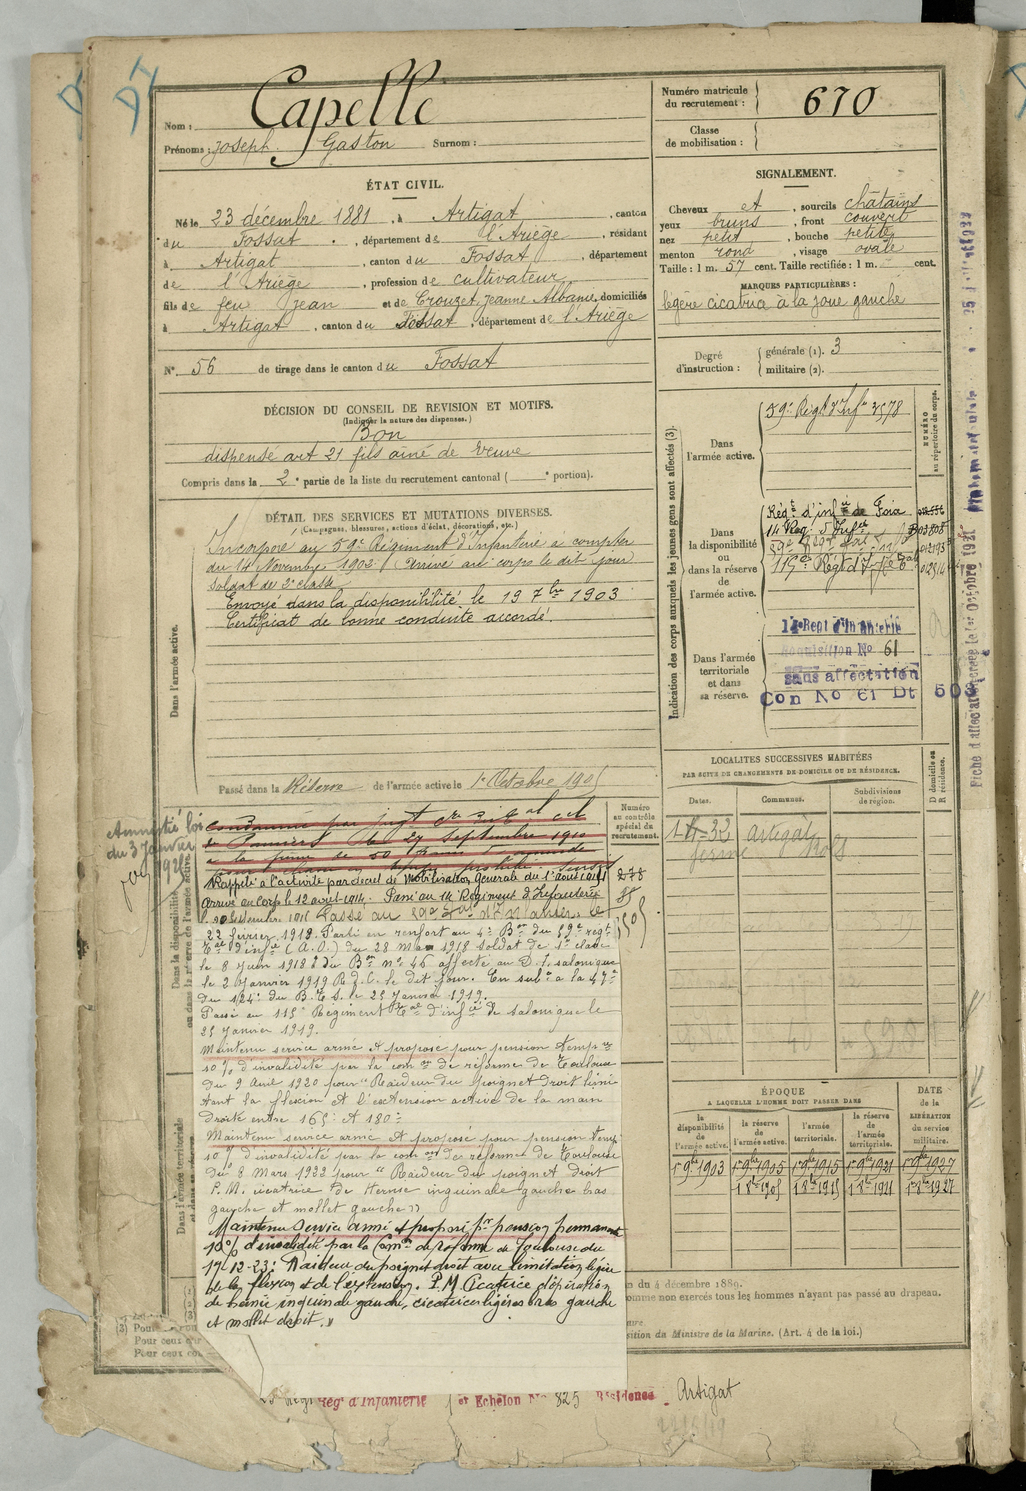 Nom : Capelle
Prénoms : Joseph Gaston Surnom :
Numéro matricule
du recrutement : 670
Classe
de mobilisation :
ÉTAT CIVIL.
Né le 23 décembre 1881, à Artigat, canton
du Fossat, département de l'Ariège, résidant
à Artigat, canton du Fossat, département
de l'Ariège, profession de cultivateur
fils de feu Jean et de Crouzet Jeanne Albanie, domiciliés
à Artigat, canton du Fossat, département de l'Ariège
N° 56 de tirage dans le canton du Fossat
SIGNALEMENT.
Cheveux et, sourcils châtains
yeux bruns, front couvert
nez petit, bouche petite
menton rond, visage ovale
Taille : 1 m. 57 cent. Taille rectifiée : 1 m. cent.
MARQUES PARTICULIÈRES :
légère cicatrice à la joue gauche
Degré
d'instruction :
générale (1). 3
militaire (2).
DÉCISION DU CONSEIL DE REVISION ET MOTIFS.
(Indiquer la nature des dispenses.)
Bon
dispensé art 21 fils aîné de veuve
Compris dans la 2e partie de la liste du recrutement cantonal ( portion).
DÉTAIL DES SERVICES ET MUTATIONS DIVERSES.
(Campagnes, blessures, actions d'éclat, décorations, etc.)
Dans l'armée active.
Incorporé au 59e Régiment d'Infanterie à compter
du 14 Novembre 1902. Arrivé au corps le dit jour
Soldat de 2e classe
Envoyé dans la disponibilité le 19 7bre 1903
Certificat de bonne conduite accordé.
Passé dans la Réserve de l'armée active le 1er Octobre 1905
Indication des corps auxquels les jeunes gens sont affectés (3).
NUMÉRO
au répertoire du corps.
Dans
l'armée active.
59e Régt d'Infie 2578
Dans
la disponibilité
ou
dans la réserve
de
l'armée active.
Régt d'infie de Foix
14 Reg. d'Infie
115e Régt d'Infie
Dans l'armée
territoriale
et dans
sa réserve.
14e Regt d'Infanterie
Réquisition No 61
sans affectation
Con No 61 Dt 505
Fiche d'affectation
1er Octobre 1921
LOCALITES SUCCESSIVES HABITÉES
PAR SUITE DE CHANGEMENTS DE DOMICILE OU DE RÉSIDENCE.
Dates.
Communes.
Subdivisions
de région.
D domicile ou
R résidence.
Artigat
Amnistié loi
du 3 Janvier
1925
Numéro
au contrôle
spécial du
recrutement.
278
Condamné par jugt
de Pamiers du 27 septembre 1910
à la peine de 50 francs d'amende
Rappelé à l'activité par décret de Mobilisation Générale du 1er août 1914
Arrivé au Corps le 12 août 1914. Passé au 14 Régiment d'Infanterie
22 février 1918. Parti en renfort au 4e Bon du 59e regt
Tal d'infie (A.O.) du 28 Mai 1918 soldat de 1e classe
le 8 Juin 1918
le 2 Janvier 1919
du 124e du B.T.S. le 25 Janvier 1919.
Passé au 115e Régiment Tal d'infie de salonique le
25 Janvier 1919.
Maintenu service armé et proposé pour pension tempre
10 % d'invalidité par la comon de réforme de Toulouse
du 9 Avril 1920 pour "Raideur du poignet droit limi
tant la flexion et l'extension active de la main
droite entre 165° et 180°
Maintenu service armé et proposé pour pension temp
10 % d'invalidité par la comon de réforme de Toulouse
du 8 Mars 1922 pour "Raideur du poignet droit
P.M. cicatrice de Hernie inguinale gauche bas
gauche et mollet gauche"
Maintenu service armé et proposé pr pension permanente
10 % d'invalidité par la Comon de réforme de Toulouse du
19-12-23: Raideur du poignet droit avec limitation légère
de la flexion et de l'extension. P.M. Cicatrice d'opération
de hernie inguinale gauche, cicatrices légères bras gauche
et mollet droit."
Dans la disponibilité
ou dans la réserve de l'armée active.
Dans l'armée territoriale
et dans sa réserve.
ÉPOQUE
A LAQUELLE L'HOMME DOIT PASSER DANS
DATE
de la
LIBÉRATION
du service
militaire.
la
disponibilité
de
l'armée active.
la réserve
de
l'armée active.
l'armée
territoriale.
la réserve
de
l'armée
territoriale.
1 9bre 1903
1 9bre 1905
1 9bre 1915
1 9bre 1921
1 9bre 1927
1 8bre 1905
1 8bre 1915
1 8bre 1921
1 8bre 1927
n du 4 décembre 1889.
omme non exercés tous les hommes n'ayant pas passé au drapeau.
sition du Ministre de la Marine. (Art. 4 de la loi.)
(3) Pour
Pour ceux
Pour ceux
Rég. d'Infanterie 1er Echelon No 825 Résidence Artigat